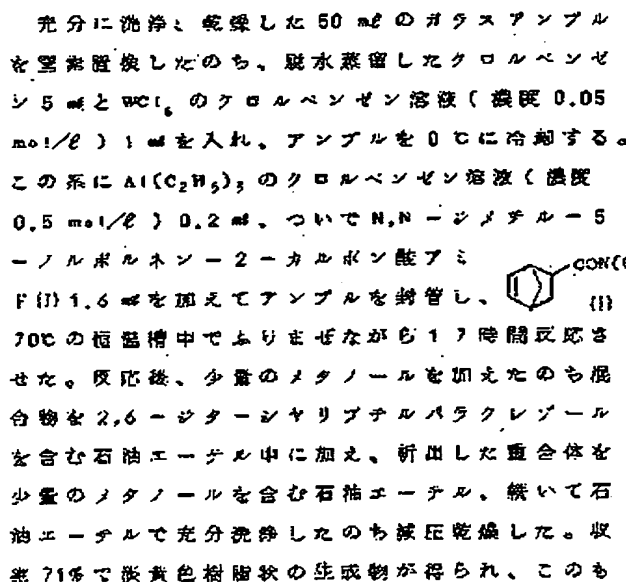 充分に洗浄、乾燥した50mlのガラスアンプル
を窒素置換したのち、脱水蒸留したクロルベンゼ
ン5mlとWCl₆のクロルベンゼン溶液(濃度0.05
mol/ℓ)1mlを入れ、アンプルを0℃に冷却する。
この系にAl(C₂H₅)₃のクロルベンゼン溶液(濃度
0.5mol/ℓ)0.2ml、ついでN,N-ジメチル-5
-ノルボルネン-2-カルボン酸アミ
ド(I)1.6mlを加えてアンプルを封管し、
CON(
(I)
70℃の恒温槽中でふりまぜながら17時間反応さ
せた。反応後、少量のメタノールを加えたのち混
合物を2,6-ジターシヤリブチルパラクレゾール
を含む石油エーテル中に加え、析出した重合体を
少量のメタノールを含む石油エーテル、続いて石
油エーテルで充分洗浄したのち減圧乾燥した。収
率71%で淡黄色樹脂状の生成物が得られ、このも